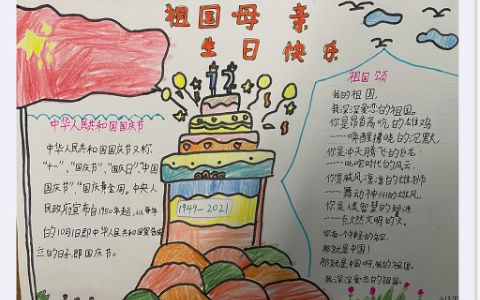 祖国母亲
生日快乐
72
中华人民共和国国庆节
中华人民共和国国庆节又称
"十一"、"国庆节"、"国庆日"、"中国
国庆节"、"国庆黄金周。中央人
民政府宣布自1950年起，以每年
的10月1日即中华人民共和国宣告成
立的日子，即国庆节。
1949-2021
祖国颂
我的祖国，
我深深爱恋的祖国。
你是昂首高吭的雄鸡
----唤醒拂晓的沉默，
你是冲天腾飞的巨龙
----叱咤时代的风云，
你是威风凛凛的雄狮
----舞动神州的雄风，
你是人类智慧的起源
----点燃文明的火，
你有一个神圣的名字
那就是中国！
那就是中国啊，我的祖国。
我深深爱恋的祖国。